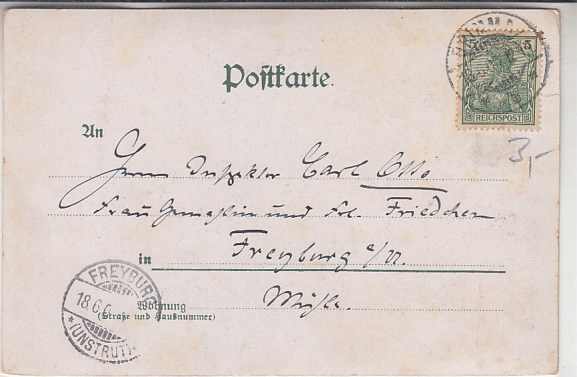 Postkarte.
5
REICHSPOST
3,-
An
Herrn Inspektor Carl Otto
Frau Gemahlin und Frl. Friedchen
in Freyburg a/U.
Wohnung
(Straße und Hausnummer)
Mühle.
FREYBURG
18.6.0
* (UNSTRUT) *